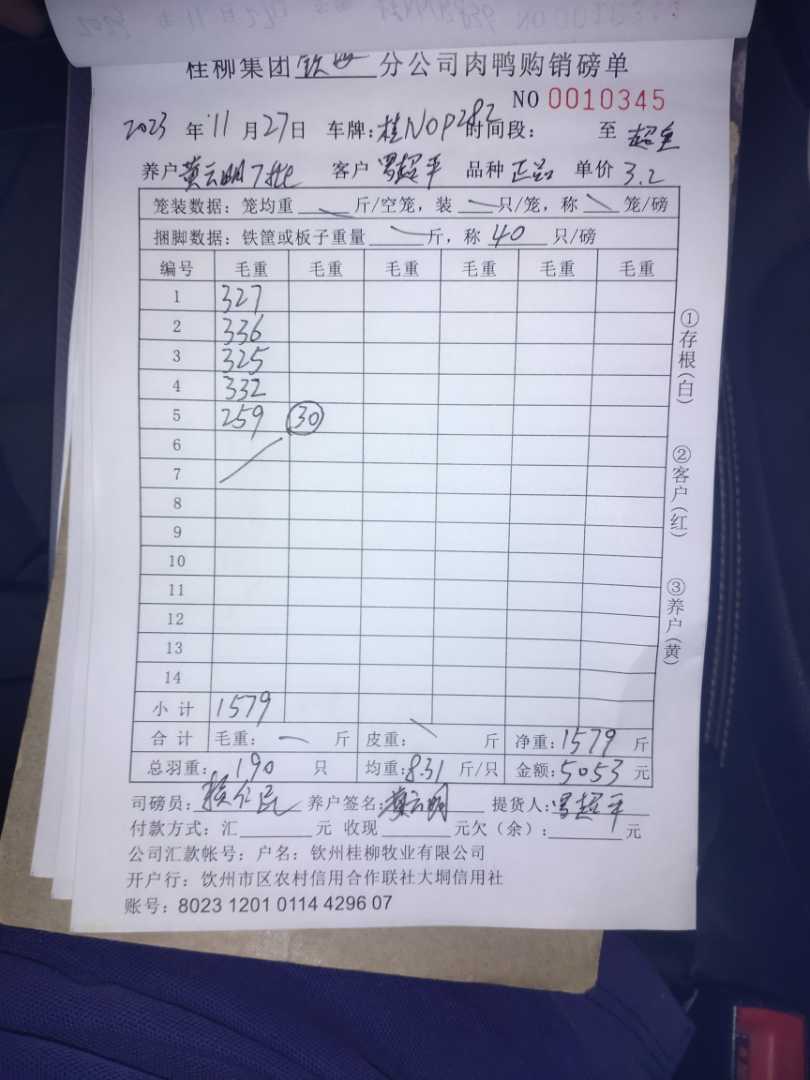 桂柳集团 钦州 分公司肉鸭购销磅单
NO 0010345
2023 年 11 月 27 日 车牌: 桂NOP282 时间段: 至
养户 黄云明7批 客户 罗超平 品种 正品 单价 3.2
笼装数据: 笼均重 斤/空笼, 装 只/笼, 称 笼/磅
捆脚数据: 铁筐或板子重量 斤, 称 40 只/磅
编号 毛重 毛重 毛重 毛重 毛重 毛重
1 327
2 336
3 325
4 332
5 259 30
6
7
8
9
10
11
12
13
14
小 计 1579
合 计 毛重: 斤 皮重: 斤 净重: 1579 斤
总羽重: 190 只 均重: 8.31 斤/只 金额: 5053 元
司磅员: 养户签名: 黄云明 提货人: 罗超平
付款方式: 汇 元 收现 元欠(余): 元
公司汇款帐号: 户名: 钦州桂柳牧业有限公司
开户行: 饮州市区农村信用合作联社大垌信用社
账号: 8023 1201 0114 4296 07
①存根(白)
②客户(红)
③养户(黄)